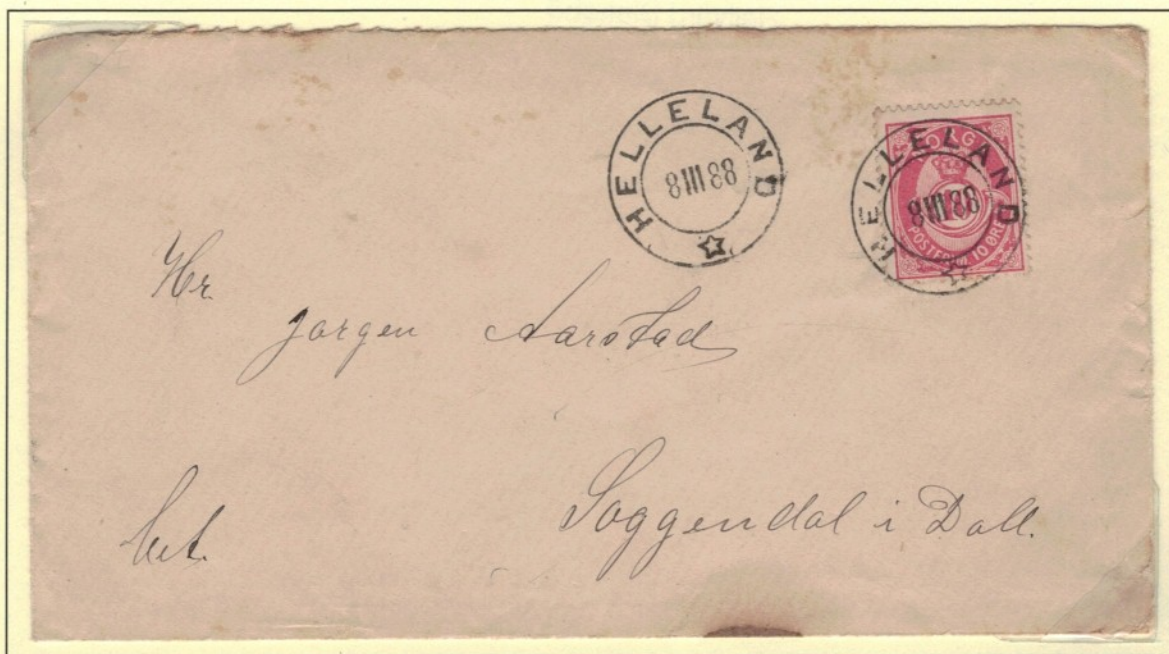 HELLELAND
8 III 88
NORGE
HELLELAND
8 III 88
POSTFRIM 10 ØRE
Hr.
Jørgen Aarstad
Soggendal i Dall.
bet.